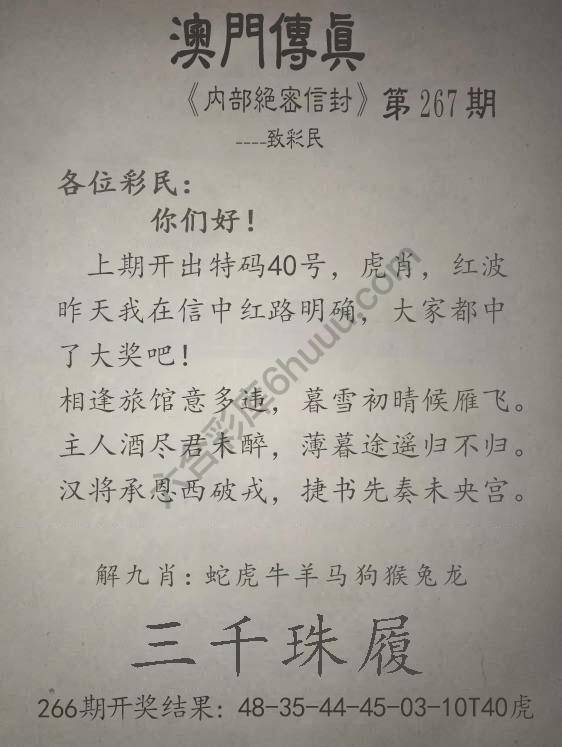 澳門傳眞
《内部絕密信封》第267期
----致彩民
各位彩民：
你们好！
上期开出特码40号，虎肖，红波
昨天我在信中红路明确，大家都中
了大奖吧！
相逢旅馆意多违，暮雪初晴候雁飞。
主人酒尽君未醉，薄暮途遥归不归。
汉将承恩西破戎，捷书先奏未央宫。
解九肖：蛇虎牛羊马狗猴兔龙
三千珠履
266期开奖结果：48-35-44-45-03-10T40虎
六合彩库6huuu.com